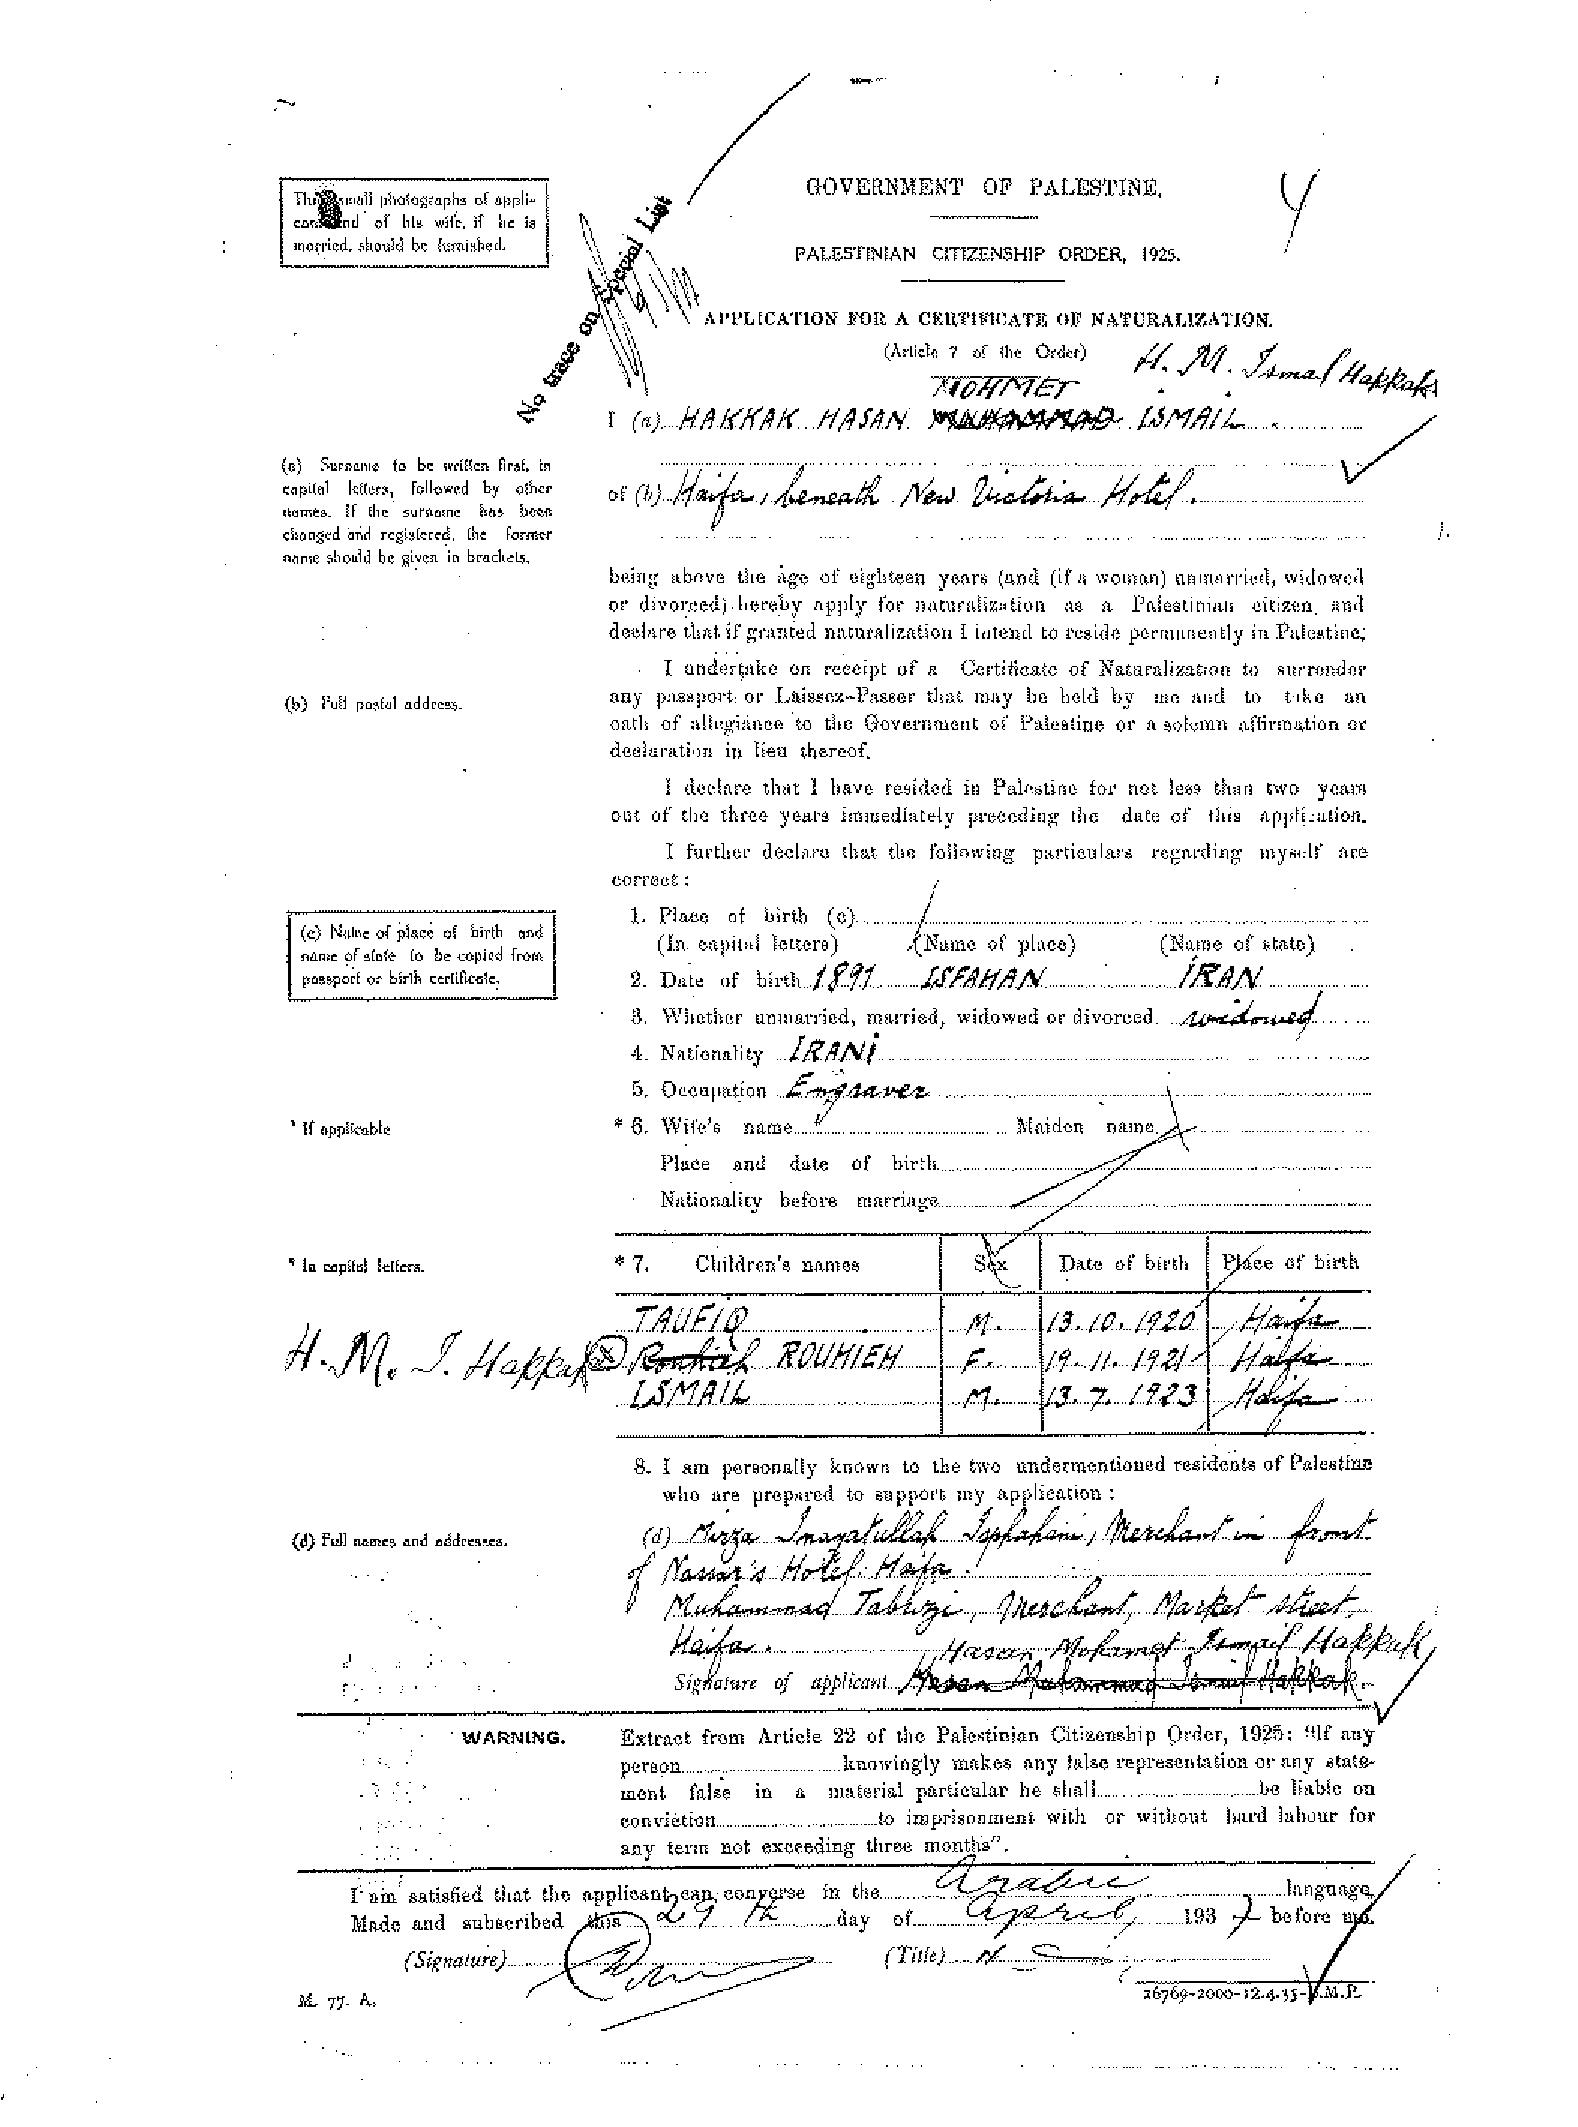 Three small photographs of appli-
cant and of his wife, if he is
married, should be furnished.
No trace on Special List
GOVERNMENT OF PALESTINE.
4
PALESTINIAN CITIZENSHIP ORDER, 1925.
APPLICATION FOR A CERTIFICATE OF NATURALIZATION.
(Article 7 of the Order)
H. M. Ismail Hakkak
MOHMET
I (a) HAKKAK HASAN MUHAMMAD ISMAIL
(a) Surname to be written first, in
capital letters, followed by other
names. If the surname has been
changed and registered, the former
name should be given in brackets.
of (b) Haifa, beneath New Victoria Hotel.
being above the age of eighteen years (and (if a woman) unmarried, widowed
or divorced) hereby apply for naturalization as a Palestinian citizen, and
declare that if granted naturalization I intend to reside permanently in Palestine;
I undertake on receipt of a Certificate of Naturalization to surrender
(b) Full postal address.
any passport or Laissez-Passer that may be held by me and to take an
oath of allegiance to the Government of Palestine or a solemn affirmation or
declaration in lieu thereof.
I declare that I have resided in Palestine for not less than two years
out of the three years immediately preceding the date of this application.
I further declare that the following particulars regarding myself are
correct:
(c) Name of place of birth and
name of state to be copied from
passport or birth certificate.
1. Place of birth (c)
(In capital letters) (Name of place) (Name of state)
2. Date of birth 1891 ISFAHAN IRAN
3. Whether unmarried, married, widowed or divorced. widowed
4. Nationality IRANi
5. Occupation Engraver
* If applicable
* 6. Wife's name Maiden name
Place and date of birth
Nationality before marriage
* In capital letters.
* 7. Children's names Sex Date of birth Place of birth
TAUFIQ M. 13.10.1920 Haifa
H. M. I. Hakkak Rouhieh ROUHIEH F. 19.11.1921 Haifa
ISMAIL M. 13.7.1923 Haifa
8. I am personally known to the two undermentioned residents of Palestine
who are prepared to support my application:
(d) Full names and addresses.
(d) Mirza Inayatullah Isphahani, Merchant in front
of Nassar's Hotel. Haifa.
Muhammad Tabrizi, Merchant, Market street,
Haifa.
Hasan Mohamet Ismail Hakkak
Signature of applicant Hasan Muhammad Ismail Hakkak.
WARNING.
Extract from Article 22 of the Palestinian Citizenship Order, 1925: "If any
person knowingly makes any false representation or any state-
ment false in a material particular he shall be liable on
conviction to imprisonment with or without hard labour for
any term not exceeding three months".
I am satisfied that the applicant can converse in the Arabic language
Made and subscribed this 29th day of April, 1937 before me.
(Signature) (Title)
M. 77. A.
26769-2000-12.4.35-G.M.P.